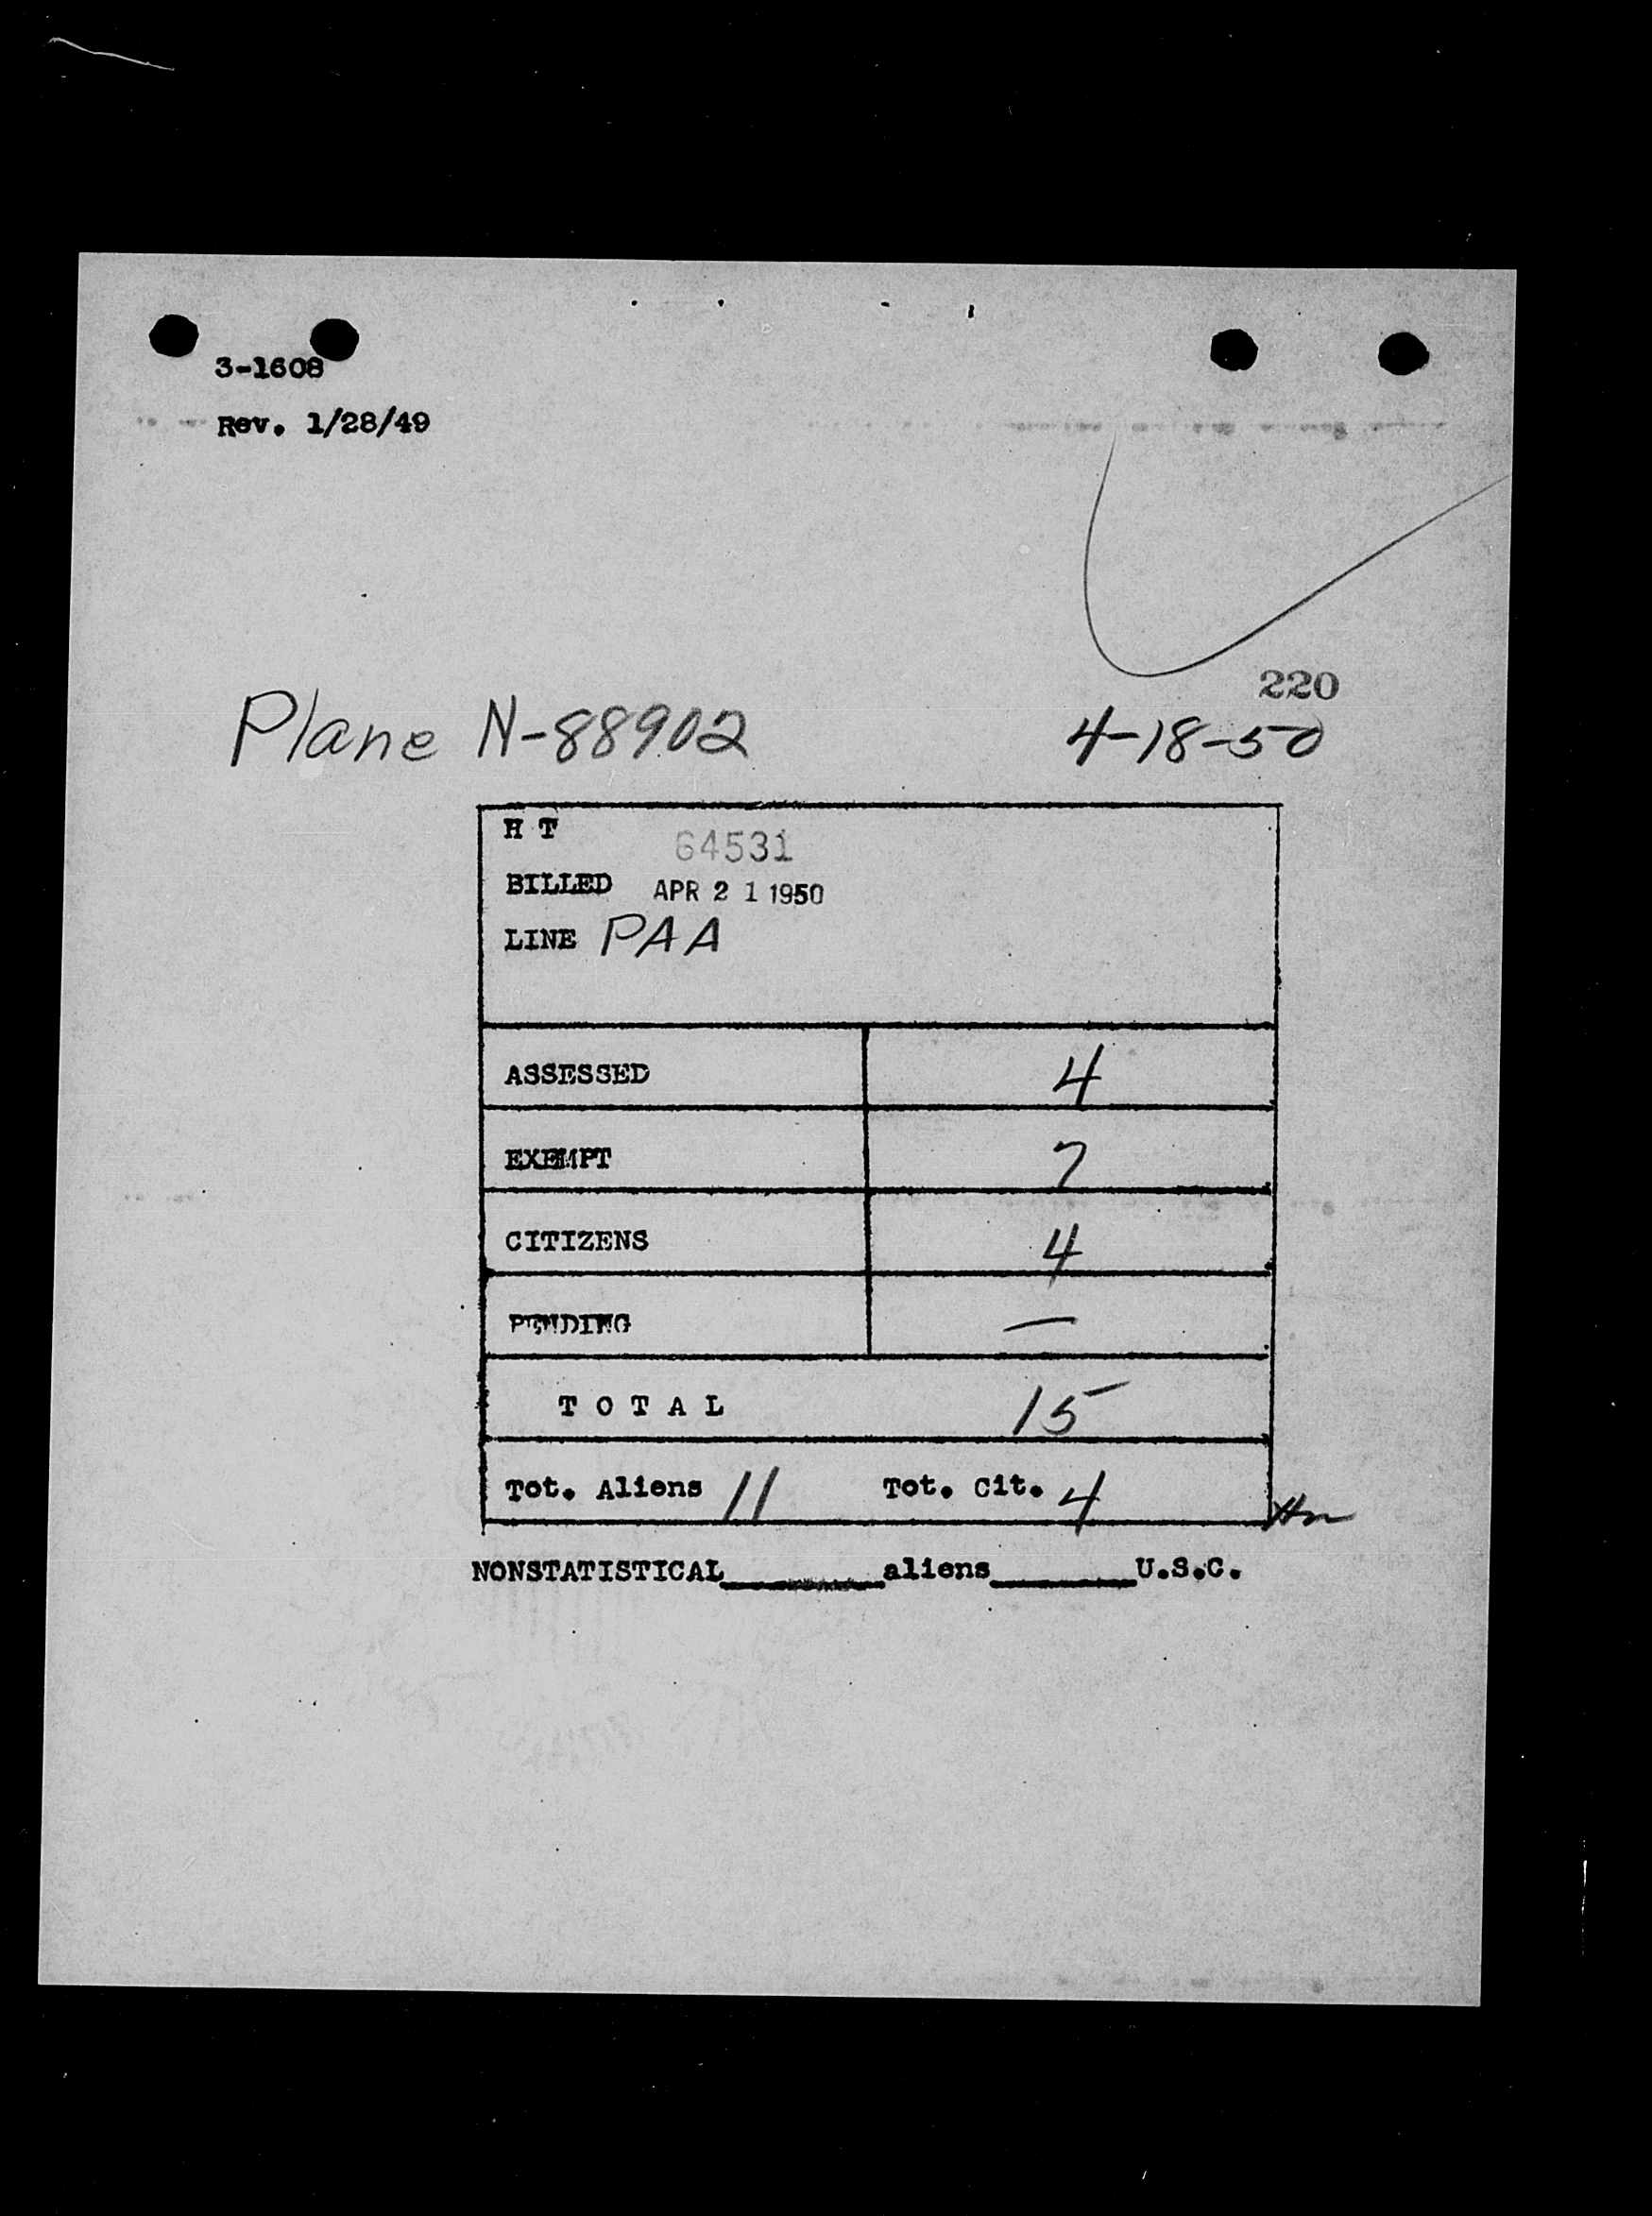 3-1608
Rev. 1/28/49
220
Plane N-88902 4-18-50
H T 64531
BILLED APR 21 1950
LINE PAA
ASSESSED 4
EXEMPT 7
CITIZENS 4
PENDING —
TOTAL 15
Tot. Aliens 11 Tot. Cit. 4
NONSTATISTICAL________aliens________U.S.C.